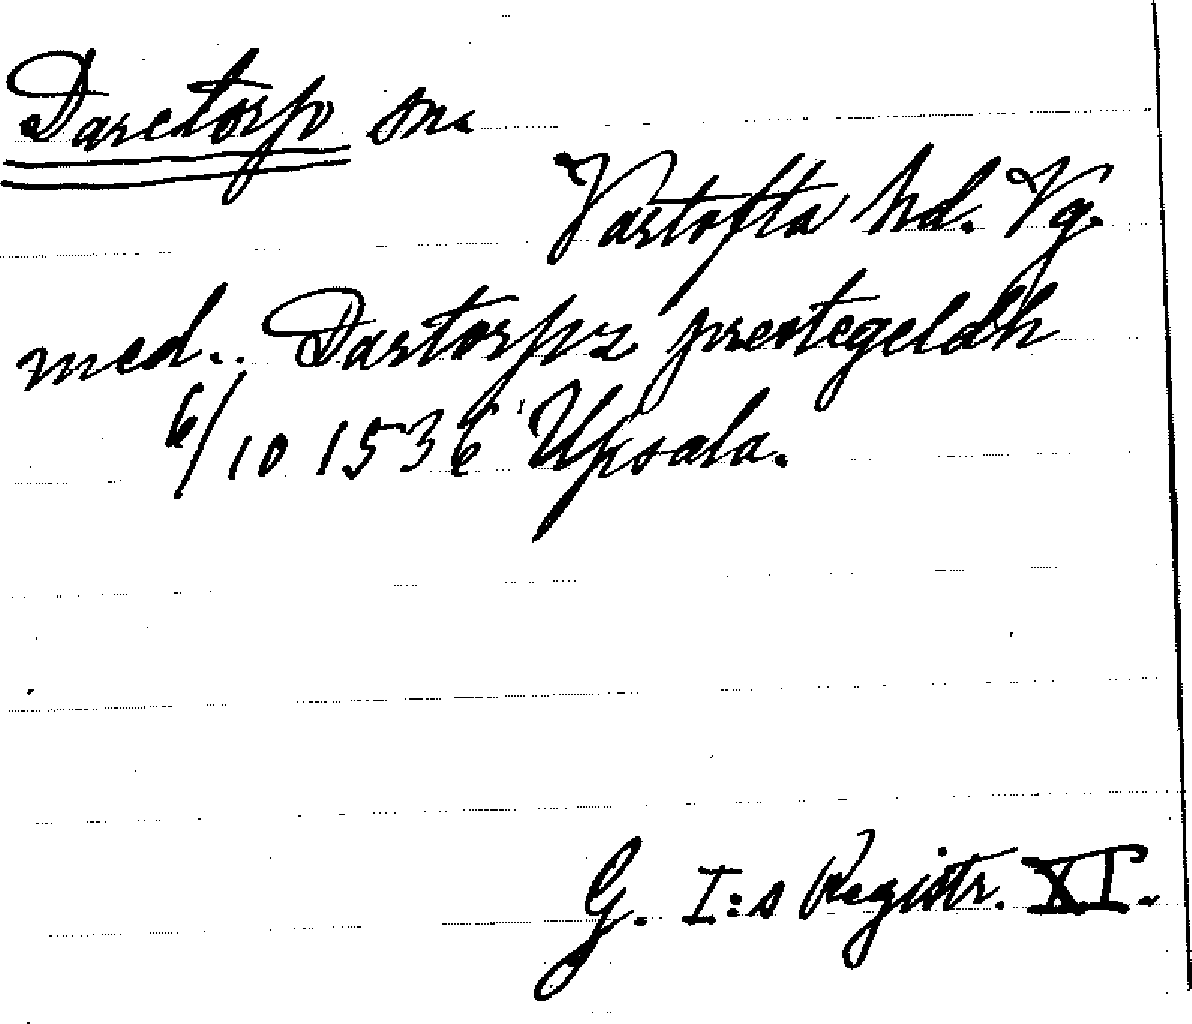 Daretorp sn.
Vartofta hd. Vg.
med. Dartorpz prestegeldh
6/10 1536 Upsala.
G. I:s Registr. XI.